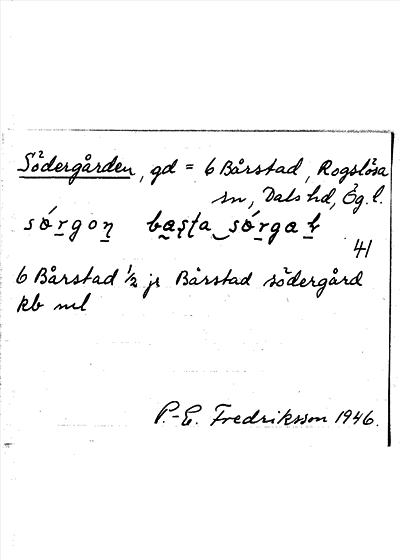 Södergården, gd = 6 Bårstad, Rogslösa
sn, Dals hd, Ög. l.
sǿrgon basta sǿrgaṛ
41
6 Bårstad 1/2 jr Bårstad södergård
kb ml
P.-E. Fredriksson 1946.